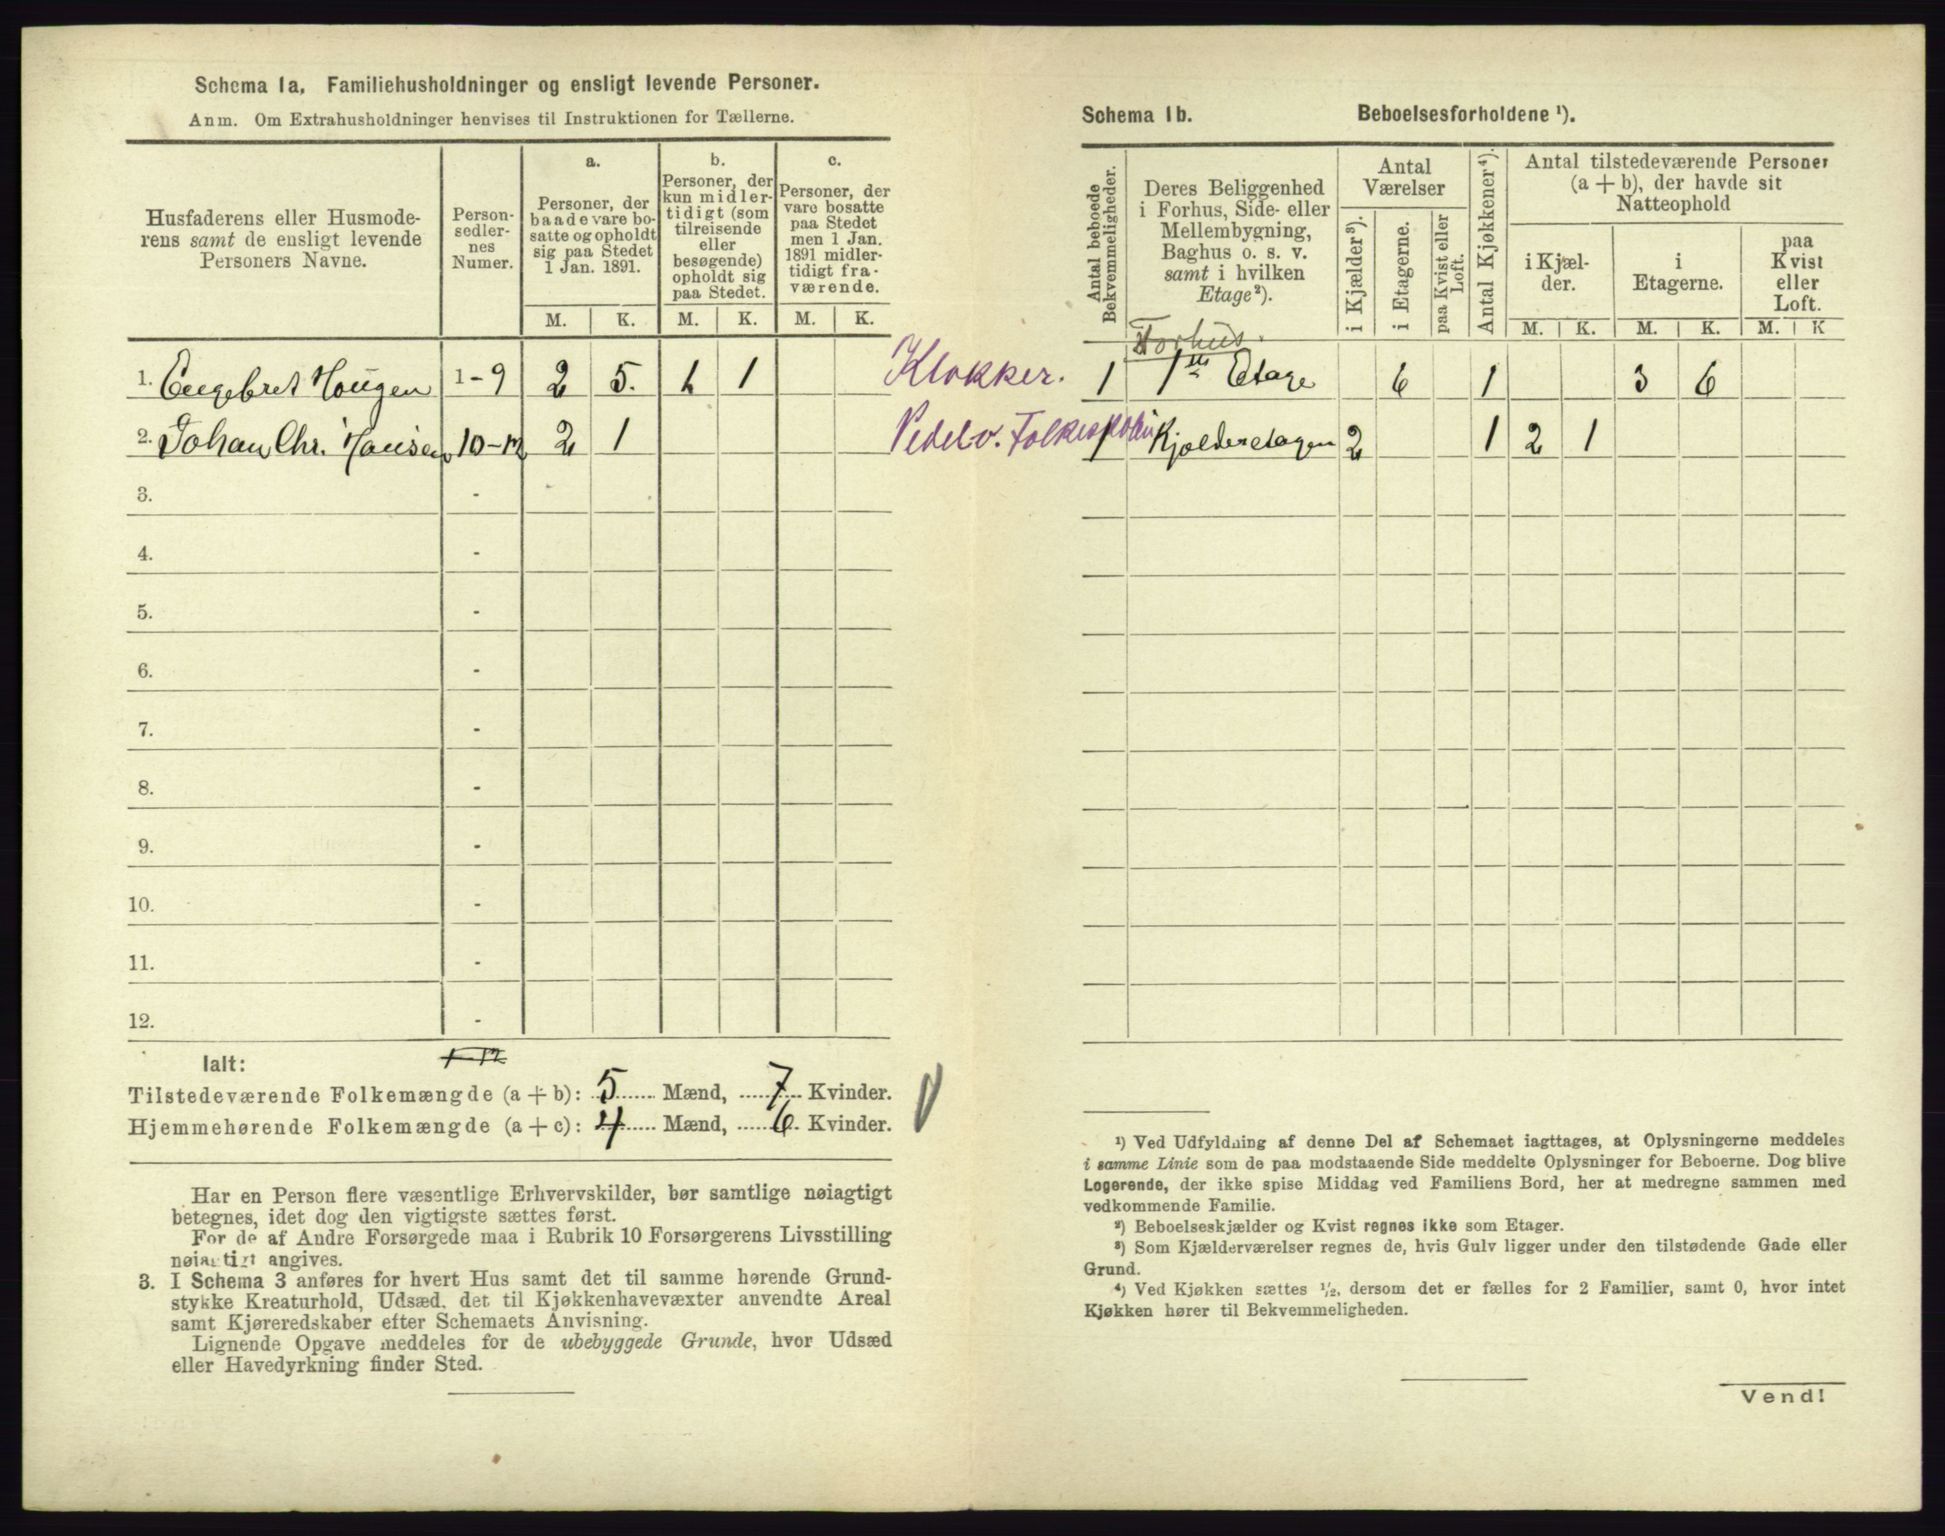 Schema 1a, Familiehusholdninger og ensligt levende Personer.
Anm. Om Extrahusholdninger henvises til Instruktionen for Tællerne.
Husfaderens eller Husmode-
rens samt de ensligt levende
Personers Navne.
Person-
sedler-
nes
Numer.
a.
Personer, der
baade vare bo-
satte og opholdt
sig paa Stedet
1 Jan. 1891.
b.
Personer, der
kun midler-
tidigt (som
tilreisende
eller
besøgende)
opholdt sig
paa Stedet.
c.
Personer, der
vare bosatte
paa Stedet
men 1 Jan.
1891 midler-
tidigt fra-
værende.
M. K. M. K. M. K.
1. Engebret Hougen 1-9 2 5. 1 1
2. Johan Chr. Hansen 10-12 2 1
3. -
4. -
5. -
6. -
7. -
8. -
9. -
10. -
11. -
12. -
Ialt: 1-12
Tilstedeværende Folkemængde (a+b): 5 Mænd, 7 Kvinder.
Hjemmehørende Folkemængde (a+c): 4 Mænd, 6 Kvinder.
Har en Person flere væsentlige Erhvervskilder, bør samtlige nøiagtigt
betegnes, idet dog den vigtigste sættes først.
For de af Andre Forsørgede maa i Rubrik 10 Forsørgerens Livsstilling
nøiagtigt angives.
3. I Schema 3 anføres for hvert Hus samt det til samme hørende Grund-
stykke Kreaturhold, Udsæd, det til Kjøkkenhavevæxter anvendte Areal
samt Kjøreredskaber efter Schemaets Anvisning.
Lignende Opgave meddeles for de ubebyggede Grunde, hvor Udsæd
eller Havedyrkning finder Sted.
Schema 1b. Beboelsesforholdene ¹).
Antal beboede
Bekvemmeligheder.
Deres Beliggenhed
i Forhus, Side- eller
Mellembygning,
Baghus o. s. v.
samt i hvilken
Etage²).
Antal
Værelser
i Kjælder³).
i Etagerne.
paa Kvist eller
Loft.
Antal Kjøkkener⁴).
Antal tilstedeværende Personer
(a + b), der havde sit
Natteophold
i Kjæl-
der.
i
Etagerne.
paa
Kvist
eller
Loft.
M. K. M. K. M. K
Forhus.
Klokker. 1 1ste Etage 6 1 3 6
Pedel v. Folkeskolen 1 Kjælderetagen 2 1 2 1
¹) Ved Udfyldning af denne Del af Schemaet iagttages, at Oplysningerne meddeles
i samme Linie som de paa modstaaende Side meddelte Oplysninger for Beboerne. Dog blive
Logerende, der ikke spise Middag ved Familiens Bord, her at medregne sammen med
vedkommende Familie.
²) Beboelseskjælder og Kvist regnes ikke som Etager.
³) Som Kjælderværelser regnes de, hvis Gulv ligger under den tilstødende Gade eller
Grund.
⁴) Ved Kjøkken sættes ½, dersom det er fælles for 2 Familier, samt 0, hvor intet
Kjøkken hører til Bekvemmeligheden.
Vend!